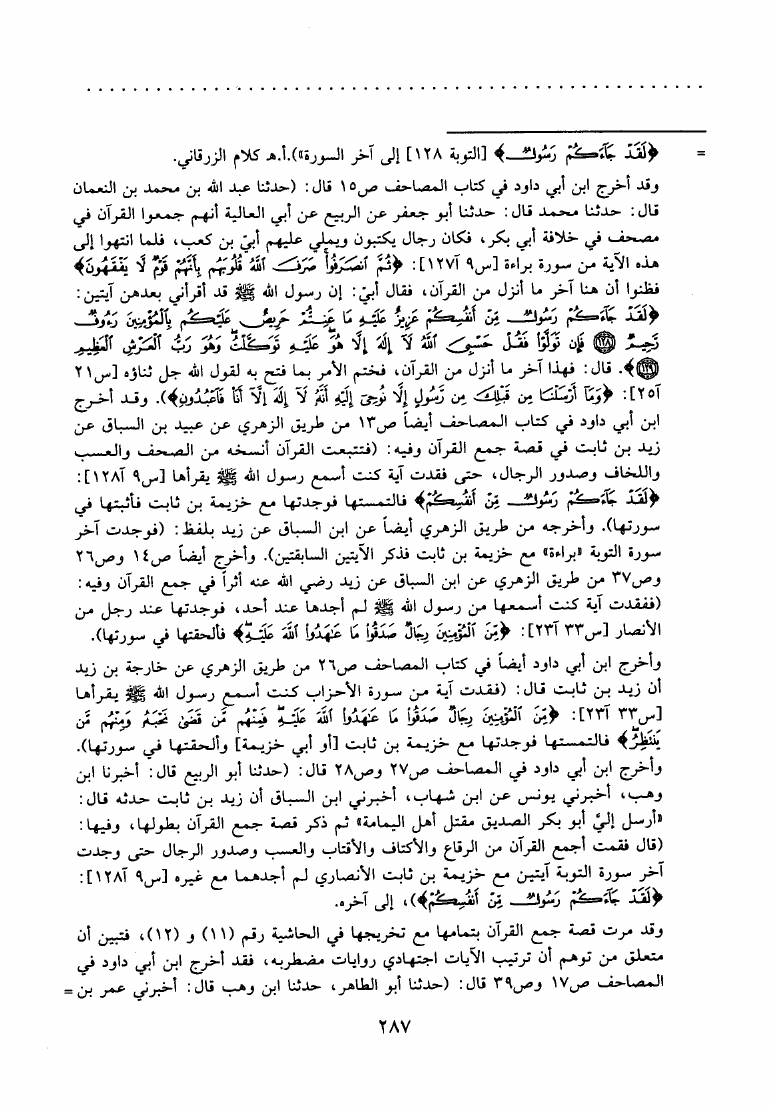 = ﴿لَقَدْ جَآءَكُمْ رَسُولٌ﴾ [التوبة ١٢٨] إلى آخر السورة»).أ.هـ كلام الزرقاني.
وقد أخرج ابن أبي داود في كتاب المصاحف ص١٥ قال: (حدثنا عبد الله بن محمد بن النعمان
قال: حدثنا محمد قال: حدثنا أبو جعفر عن الربيع عن أبي العالية أنهم جمعوا القرآن في
مصحف في خلافة أبي بكر، فكان رجال يكتبون ويملي عليهم أبيّ بن كعب، فلما انتهوا إلى
هذه الآية من سورة براءة [س٩ آ١٢٧]: ﴿ثُمَّ ٱنصَرَفُوا۟ صَرَفَ ٱللَّهُ قُلُوبَهُم بِأَنَّهُمْ قَوْمٌ لَّا يَفْقَهُونَ﴾
فظنوا أن هنا آخر ما أنزل من القرآن، فقال أبيّ: إن رسول الله ﷺ قد أقرأني بعدهن آيتين:
﴿لَقَدْ جَآءَكُمْ رَسُولٌ مِّنْ أَنفُسِكُمْ عَزِيزٌ عَلَيْهِ مَا عَنِتُّمْ حَرِيصٌ عَلَيْكُم بِٱلْمُؤْمِنِينَ رَءُوفٌ
رَّحِيمٌ ١٢٨ فَإِن تَوَلَّوْا۟ فَقُلْ حَسْبِىَ ٱللَّهُ لَآ إِلَٰهَ إِلَّا هُوَ عَلَيْهِ تَوَكَّلْتُ وَهُوَ رَبُّ ٱلْعَرْشِ ٱلْعَظِيمِ
١٢٩﴾. قال: فهذا آخر ما أنزل من القرآن، فختم الأمر بما فتح به لقول الله جل ثناؤه [س٢١
آ٢٥]: ﴿وَمَآ أَرْسَلْنَا مِن قَبْلِكَ مِن رَّسُولٍ إِلَّا نُوحِىٓ إِلَيْهِ أَنَّهُۥ لَآ إِلَٰهَ إِلَّآ أَنَا۠ فَٱعْبُدُونِ﴾). وقد أخرج
ابن أبي داود في كتاب المصاحف أيضاً ص١٣ من طريق الزهري عن عبيد بن السباق عن
زيد بن ثابت في قصة جمع القرآن وفيه: (فتتبعت القرآن أنسخه من الصحف والعسب
واللخاف وصدور الرجال، حتى فقدت آية كنت أسمع رسول الله ﷺ يقرأها [س٩ آ١٢٨]:
﴿لَقَدْ جَآءَكُمْ رَسُولٌ مِّنْ أَنفُسِكُمْ﴾ فالتمستها فوجدتها مع خزيمة بن ثابت فأثبتها في
سورتها). وأخرجه من طريق الزهري أيضاً عن ابن السباق عن زيد بلفظ: (فوجدت آخر
سورة التوبة «براءة» مع خزيمة بن ثابت فذكر الآيتين السابقتين). وأخرج أيضاً ص١٤ وص٢٦
وص٣٧ من طريق الزهري عن ابن السباق عن زيد رضي الله عنه أثراً في جمع القرآن وفيه:
(ففقدت آية كنت أسمعها من رسول الله ﷺ لم أجدها عند أحد، فوجدتها عند رجل من
الأنصار [س٣٣ آ٢٣]: ﴿مِّنَ ٱلْمُؤْمِنِينَ رِجَالٌ صَدَقُوا۟ مَا عَٰهَدُوا۟ ٱللَّهَ عَلَيْهِ﴾ فألحقتها في سورتها).
وأخرج ابن أبي داود أيضاً في كتاب المصاحف ص٢٦ من طريق الزهري عن خارجة بن زيد
أن زيد بن ثابت قال: (فقدت آية من سورة الأحزاب كنت أسمع رسول الله ﷺ يقرأها
[س٣٣ آ٢٣]: ﴿مِّنَ ٱلْمُؤْمِنِينَ رِجَالٌ صَدَقُوا۟ مَا عَٰهَدُوا۟ ٱللَّهَ عَلَيْهِ فَمِنْهُم مَّن قَضَىٰ نَحْبَهُۥ وَمِنْهُم مَّن
يَنتَظِرُ﴾ فالتمستها فوجدتها مع خزيمة بن ثابت [أو أبي خزيمة] وألحقتها في سورتها).
وأخرج ابن أبي داود في المصاحف ص٢٧ وص٢٨ قال: (حدثنا أبو الربيع قال: أخبرنا ابن
وهب، أخبرني يونس عن ابن شهاب، أخبرني ابن السباق أن زيد بن ثابت حدثه قال:
«أرسل إليَّ أبو بكر الصديق مقتل أهل اليمامة» ثم ذكر قصة جمع القرآن بطولها، وفيها:
(قال فقمت أجمع القرآن من الرقاع والأكتاف والأقتاب والعسب وصدور الرجال حتى وجدت
آخر سورة التوبة آيتين مع خزيمة بن ثابت الأنصاري لم أجدهما مع غيره [س٩ آ١٢٨]:
﴿لَقَدْ جَآءَكُمْ رَسُولٌ مِّنْ أَنفُسِكُمْ﴾)، إلى آخره.
وقد مرت قصة جمع القرآن بتمامها مع تخريجها في الحاشية رقم (١١) و (١٢)، فتبين أن
متعلق من توهم أن ترتيب الآيات اجتهادي روايات مضطربه، فقد أخرج ابن أبي داود في
المصاحف ص١٧ وص٣٩ قال: (حدثنا أبو الطاهر، حدثنا ابن وهب قال: أخبرني عمر بن =
٢٨٧